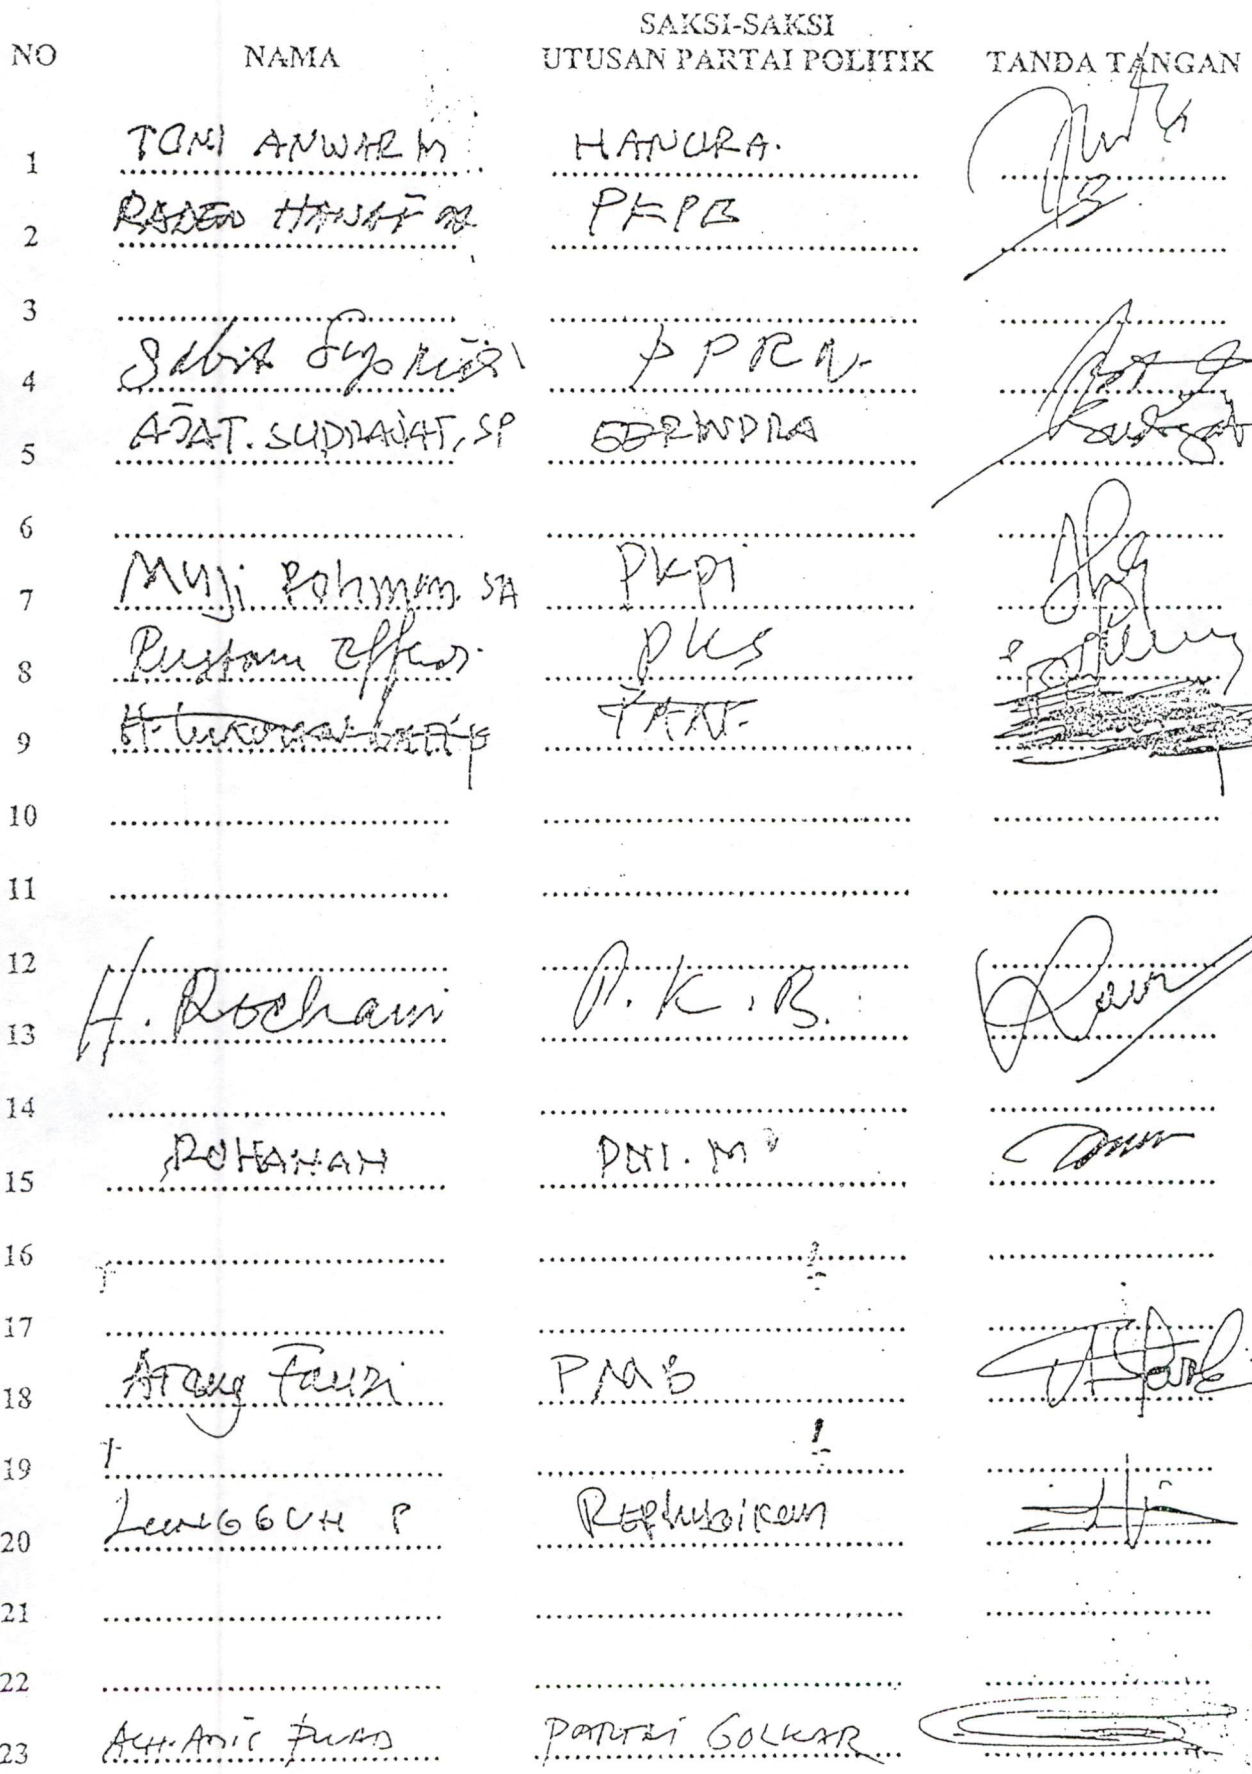 SAKSI-SAKSI
NO NAMA UTUSAN PARTAI POLITIK TANDA TANGAN
1 TONI ANWAR M HANURA.
2 RADEN PKPB
3
4 PPRN.
5 AJAT. SUDRAJAT, SP GERINDRA
6
7 Muji Rohman PKPI
8 Rustam Effendi PKS
9 PAN.
10
11
12
13 H. Rochani P.K.B.
14
15 ROHANAH PNI.M
16
17
18 Fauzi PMB
19
20 LUNGGUH P Republikan
21
22
23 PARTAI GOLKAR